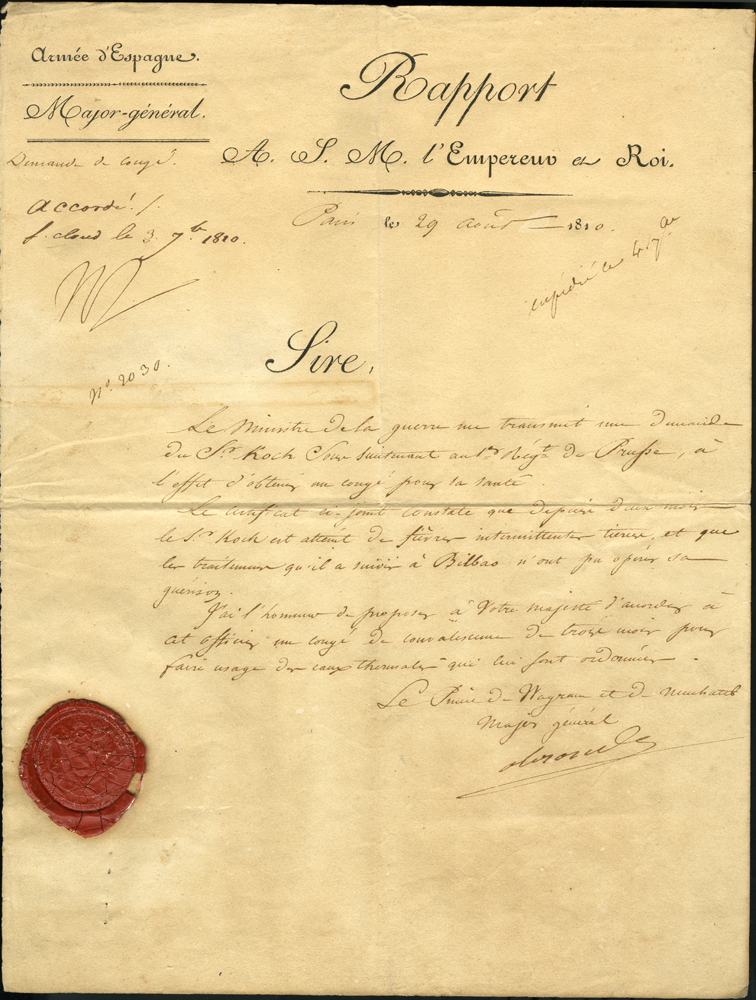 Armée d'Espagne.
Major-général.
Demande de congé.
Accordé./.
S. cloud le 3. 7bre 1810.
N
Rapport
A. S. M. l'Empereur et Roi.
Paris le 29 août 1810.
expédié le 4 7bre
No. 2030.
Sire,
Le Ministre de la guerre me transmet une demande
du Sr. Koch Sous lieutenant au 1er Régt. de Prusse, à
l'effet d'obtenir un congé pour sa santé.
Le certificat ci-joint constate que depuis deux mois
le Sr. Koch est atteint de fièvres intermittentes tierces, et que
les traitemens qu'il a suivis à Bilbao n'ont pu opérer sa
guérison.
J'ai l'honneur de proposer à Votre majesté d'accorder à
cet officier un congé de convalescence de trois mois pour
faire usage des eaux thermales qui lui sont ordonnées.
Le Prince de Wagram et de neuchatel
Major général